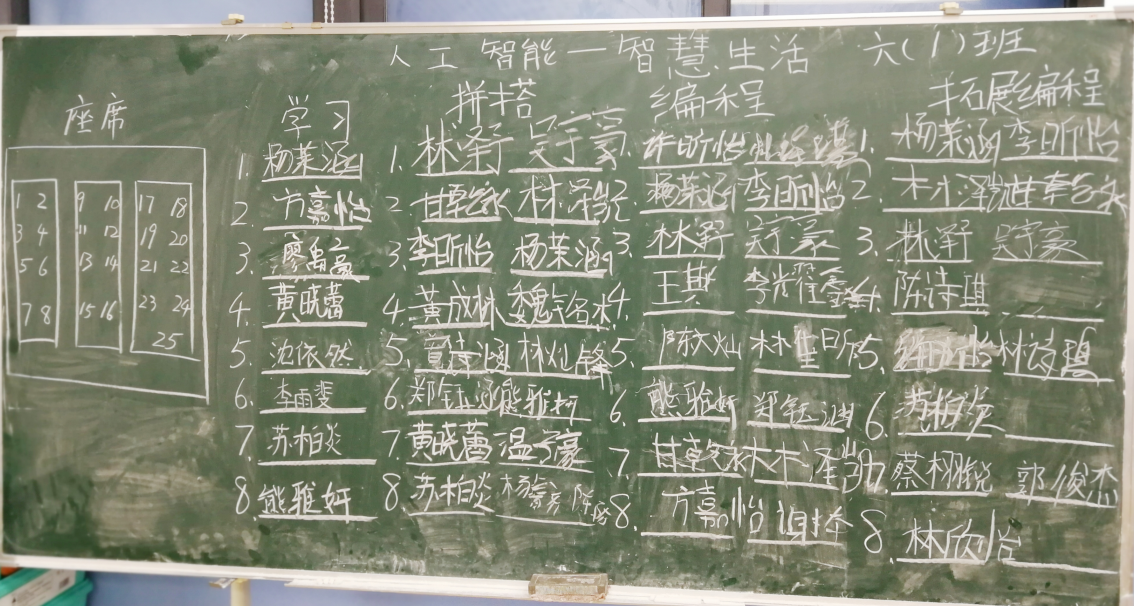 人工智能—智慧生活 六(1)班
座席
1 2
3 4
5 6
7 8
9 10
11 12
13 14
15 16
17 18
19 20
21 22
23 24
25
学习
1. 杨茉涵
2. 方嘉怡
3. 廖禹豪
4. 黄晓蕾
5. 沈依然
6. 李雨斐
7. 苏柏炎
8. 熊雅妍
拼搭
1. 林泽 吴宇豪
2. 林泽锐
3. 李昕怡 杨茉涵
4. 黄成林
5. 林灿锋
6. 郑钰涵 熊雅妍
7. 黄晓蕾 温宇豪
8. 苏柏炎
编程
1. 许昕怡
2. 杨茉涵 李昕怡
3. 林泽 吴宇豪
4. 王其 李光耀
5. 陈文灿
6. 熊雅妍 郑钰涵
7. 林泽锐
8. 方嘉怡
拓展编程
1. 杨茉涵 李昕怡
2. 林泽锐
3. 林泽 吴宇豪
4. 陈诗琪
5.
6. 苏柏炎
7. 蔡栩锐 郭俊杰
8. 林欣怡